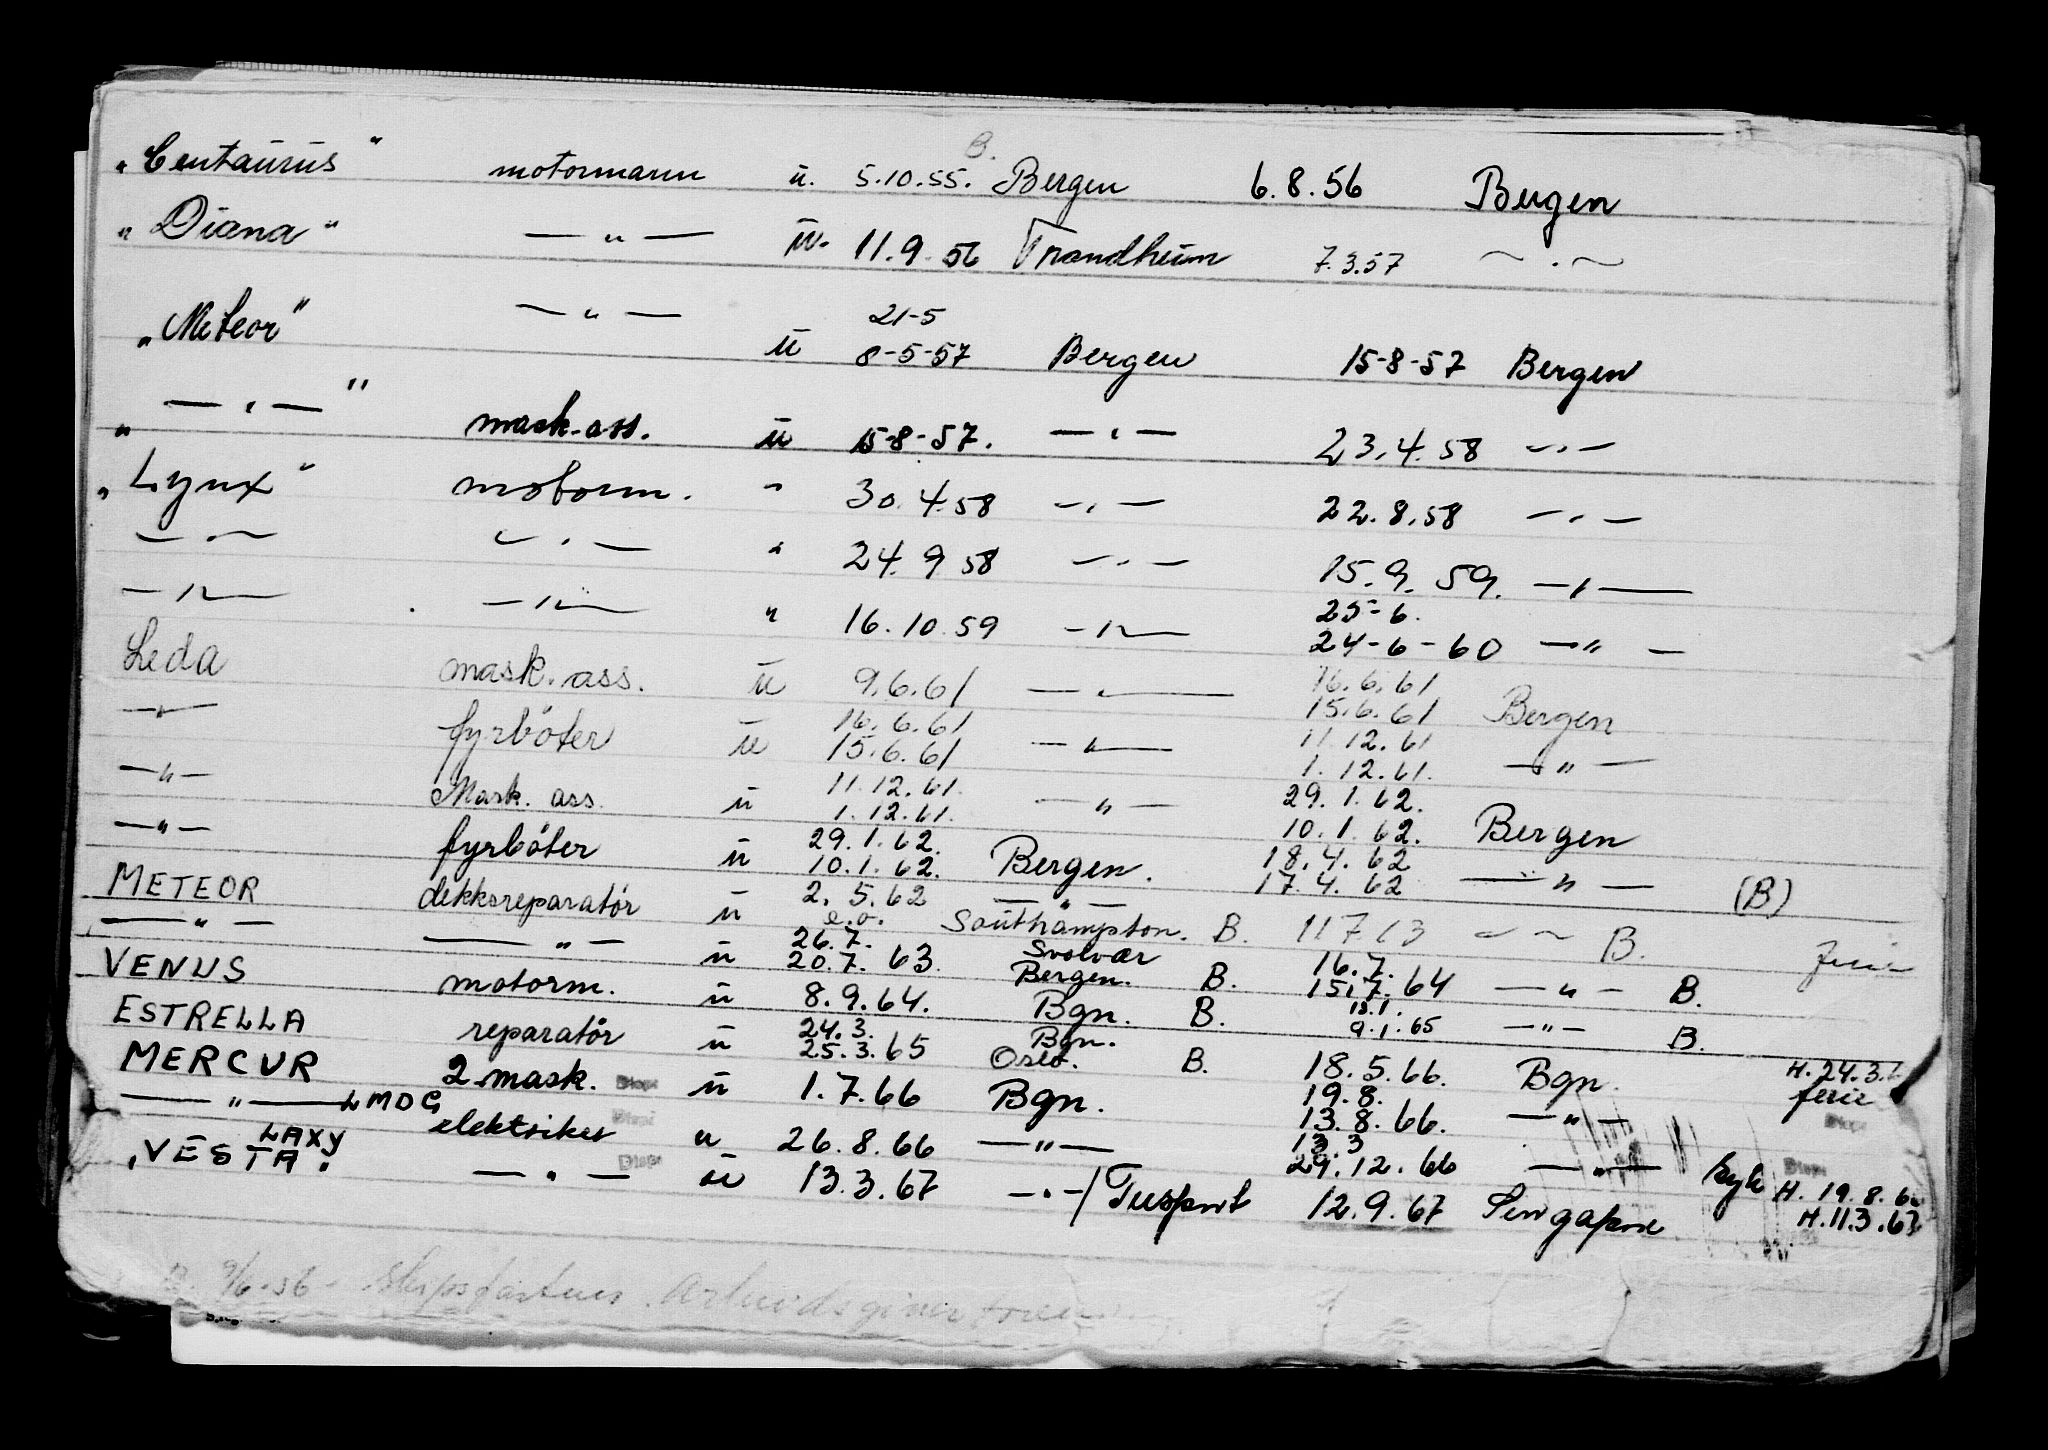 B.
"Centaurus" motormann u. 5.10.55. Bergen 6.8.56 Bergen
"Diana" —"— u. 11.9.56 Trondheim 7.3.57 —.—
21-5
"Meteor" —"— u 8-5-57 Bergen 15-8-57 Bergen
"—"—" mask.ass. u 15-8-57. —"— 23.4.58 —"—
"Lynx" motorm. " 30.4.58 —"— 22.8.58 —"—
—"— —"— " 24.9.58 —"— 15.9.59. —"—
25-6.
—"— —"— " 16.10.59 —"— 24-6-60 —"—
16.6.61
Leda mask.ass. u 9.6.61 —"— 15.6.61 Bergen
16.6.61 11.12.61
—"— fyrbøter u 15.6.61 —"— 1.12.61. —"—
11.12.61. 29.1.62.
—"— Mask. ass. u 1.12.61. —"— 10.1.62. Bergen
29.1.62. 18.4.62
—"— fyrbøter u 10.1.62. Bergen. 17.4.62 —"— (B)
2.5.62 —"—
METEOR dekksreparatør u e.o. Southampton. B. 117 63 —"— B. ferie
26.7. Svolvær 16.7.
—"— —"— u 20.7.63 Bergen. B. 15.7.64 —"— B.
18.1.
VENUS motorm. u 8.9.64. Bgn. B. 9.1.65 —"— B.
24.3. Bgn.
ESTRELLA reparatør u 25.3.65 Oslo. B. 18.5.66. Bgn. H. 24.3.
19.8. ferie
MERCUR 2.mask. u 1.7.66 Bgn. 13.8.66. —"—
13.3
—"— LMDG elektriker u 26.8.66 —"— 29.12.66 —"— syk H. 19.8.6
LAXY
"VESTA" —"— u 13.3.67 —"—/Tuspnt 12.9.67 Singapore H.11.3.67
9/6-56 - Skipsfartens Arbeidsgiverforening